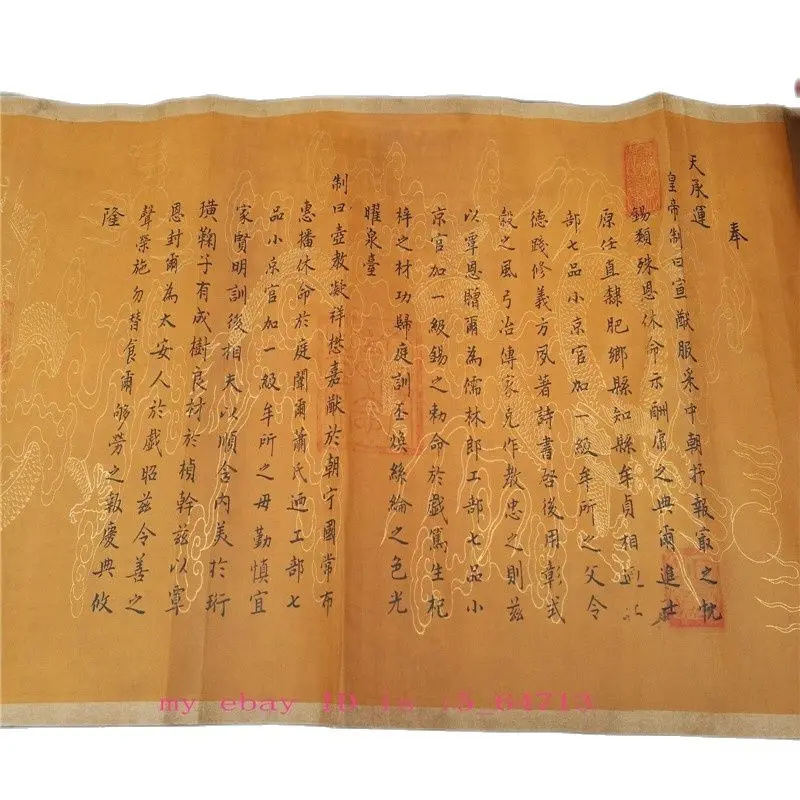 奉
天承運
皇帝制曰宣猷服采中朝抒報最之忱
錫類殊恩休命示酬庸之典爾進士
原任直隸肥鄉縣知縣牟貞相
部七品小京官加一級牟所之父令
德踐修義方夙著詩書啓後用彰式
穀之風弓冶傳家克作教忠之則茲
以覃恩贈爾為儒林郎工部七品小
京官加一級錫之勅命於戲篤生杞
梓之材功歸庭訓丕煥絲綸之色光
曜泉臺
制曰壺教凝祥懋嘉猷於朝宁國常布
惠播休命於庭闈爾蕭氏迺工部七
品小京官加一級牟所之母勤慎宜
家賢明訓後相夫以順含內美於珩
璜鞠子有成樹良材於楨幹茲以覃
恩封爾為太安人於戲昭茲令善之
聲榮施勿替食爾劬勞之報慶典攸
隆
my ebay ID is